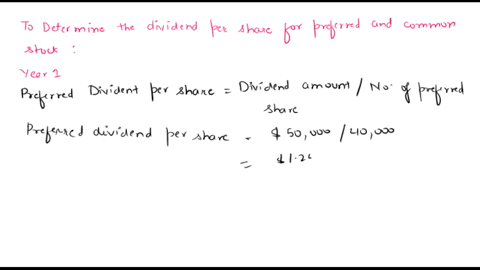 To Determine the dividend per share for preferred and common
stock :
Year 1
Preferred Divident per share = Dividend amount / No. of preferred
share
Preferred dividend per share = $50,000 / 40,000
= $1.2